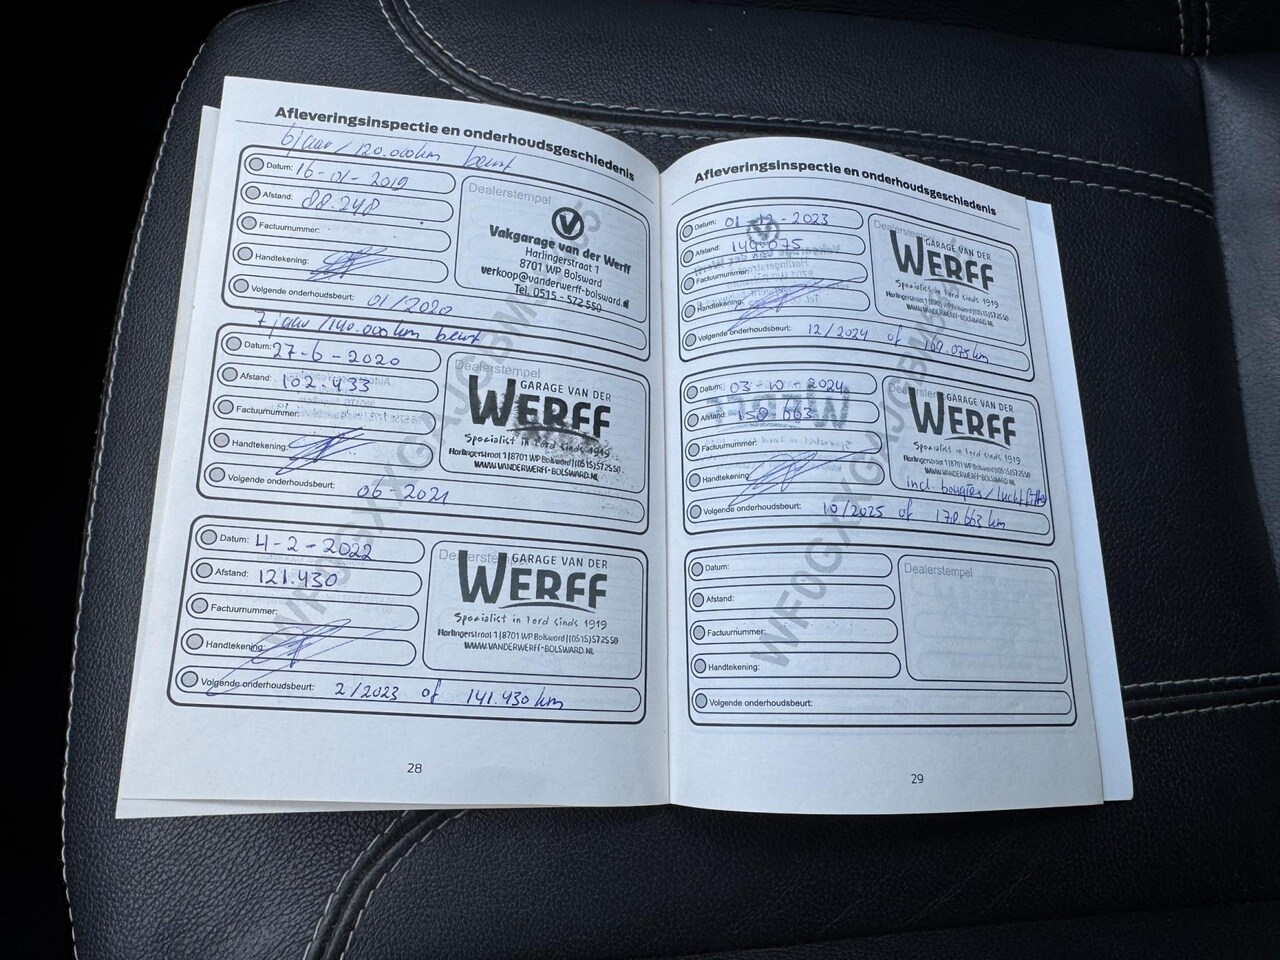 Afleveringsinspectie en onderhoudsgeschiedenis
6 jaar / 120.000 km beurt
Datum: 16-01-2019
Afstand: 88.248
Factuurnummer:
Handtekening:
Volgende onderhoudsbeurt: 01/2020
Dealerstempel
Vakgarage van der Werff
Harlingerstraat 1
8701 WP Bolsward
verkoop@vanderwerff-bolsward.nl
Tel. 0515 - 572 550
7 jaar / 140.000 km beurt
Datum: 27-6-2020
Afstand: 102.433
Factuurnummer:
Handtekening:
Volgende onderhoudsbeurt: 06-2021
Dealerstempel
GARAGE VAN DER
WERFF
Specialist in Ford sinds 1919
Harlingerstraat 1 | 8701 WP Bolsward | (0515) 572550
WWW.VANDERWERFF-BOLSWARD.NL
Datum: 4-2-2022
Afstand: 121.430
Factuurnummer:
Handtekening:
Volgende onderhoudsbeurt: 2/2023 of 141.430 km
Dealerstempel
GARAGE VAN DER
WERFF
Specialist in Ford sinds 1919
Harlingerstraat 1 | 8701 WP Bolsward | (0515) 572550
WWW.VANDERWERFF-BOLSWARD.NL
28
Afleveringsinspectie en onderhoudsgeschiedenis
Datum: 01-12-2023
Afstand: 149.075
Factuurnummer:
Handtekening:
Volgende onderhoudsbeurt: 12/2024 of 169.075 km
Dealerstempel
GARAGE VAN DER
WERFF
Specialist in Ford sinds 1919
Harlingerstraat 1 | 8701 WP Bolsward | (0515) 572550
WWW.VANDERWERFF-BOLSWARD.NL
Datum: 03-10-2024
Afstand: 158.663
Factuurnummer:
Handtekening:
Volgende onderhoudsbeurt: 10/2025 of 178.663 km
Dealerstempel
GARAGE VAN DER
WERFF
Specialist in Ford sinds 1919
Harlingerstraat 1 | 8701 WP Bolsward | (0515) 572550
WWW.VANDERWERFF-BOLSWARD.NL
incl. bougies / luchtfilter
Datum:
Afstand:
Factuurnummer:
Handtekening:
Volgende onderhoudsbeurt:
Dealerstempel
29